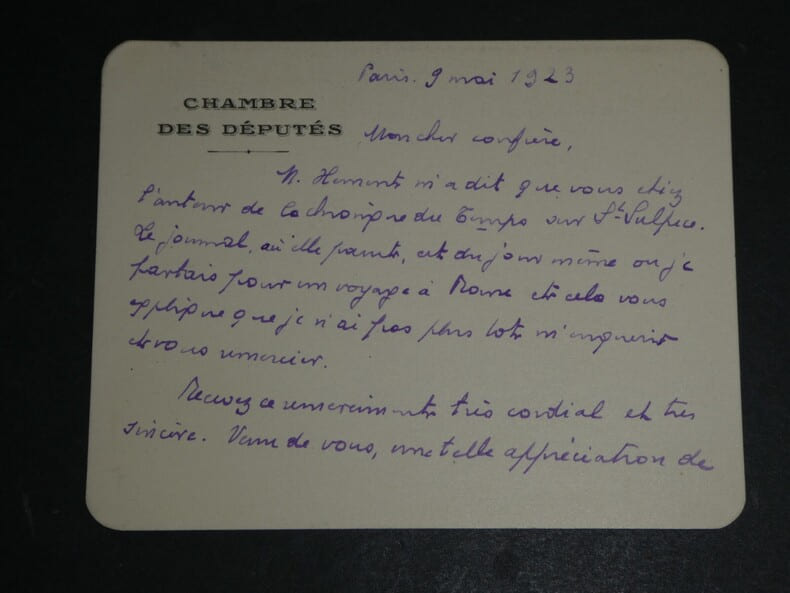 Paris. 9 mai 1923
CHAMBRE
DES DÉPUTÉS
Mon cher confrère,
M. m'a dit que vous étiez
l'auteur de la chronique du Temps sur St. Sulpice.
Le journal, où elle parut, est du jour même où je
partais pour un voyage à Rome et cela vous
explique que je n'ai pas plus tôt m'enquérir
et vous remercier.
Recevez ce remerciment très cordial et très
sincère. Venue de vous, une telle appréciation de